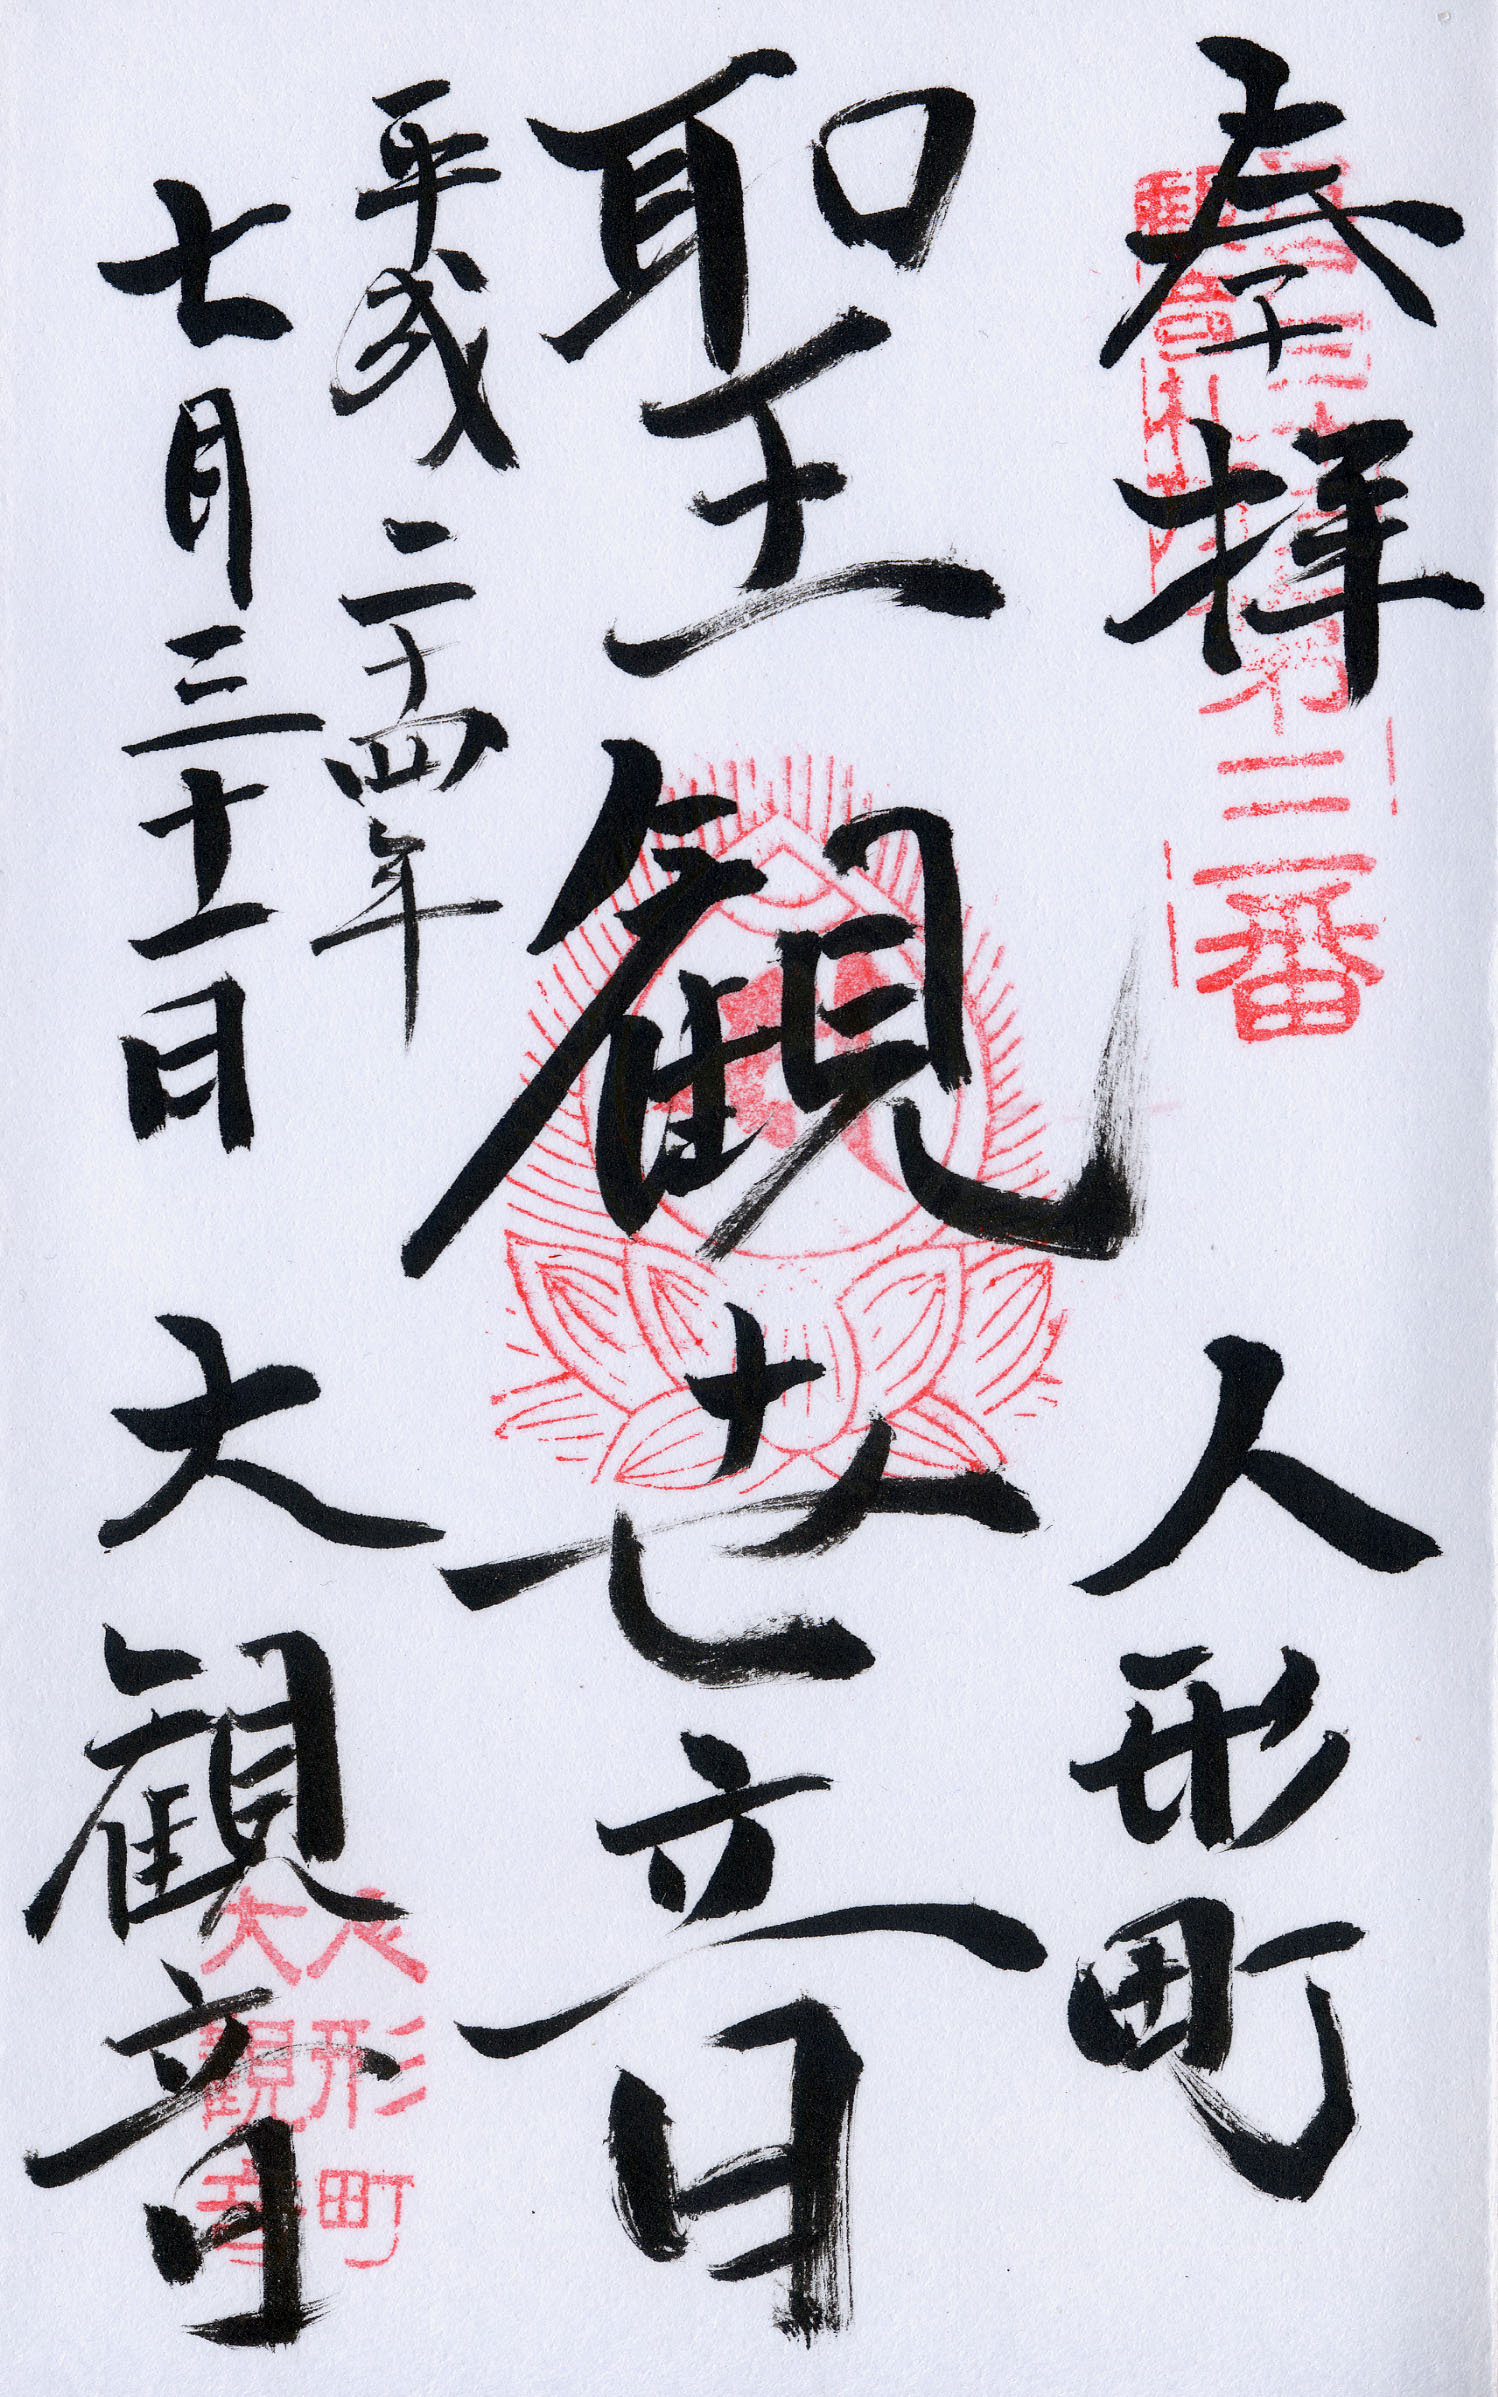 奉拝 人形町
第三番
聖観世音
平成二十四年
七月三十一日 大観音
人形町
大観音